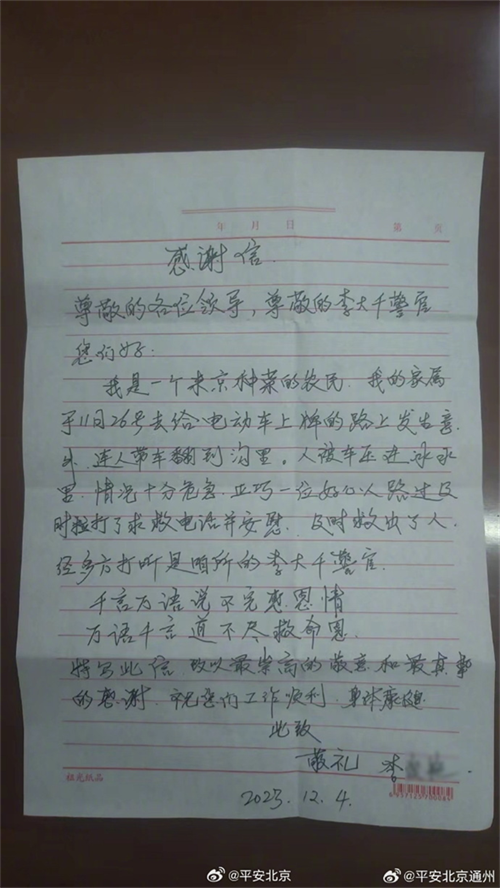 年 月 日 第 页
感谢信
尊敬的各位领导，尊敬的李大千警官
您们好：
我是一个来京种菜的农民，我的家属
于11月26号去给电动车上牌的路上发生意
外，连人带车翻到沟里，人被车压进冰水
里，情况十分危急，正巧一位好心人路过及
时拨打了求救电话并安慰，及时救出了人，
经多方打听是咱所的李大千警官，
千言万语说不完感恩情
万语千言道不尽救命恩
特写此信，致以最崇高的敬意和最真挚
的感谢，祝您们工作顺利，身体康健
此致
敬礼 李
2023.12.4.
@平安北京
@平安北京通州